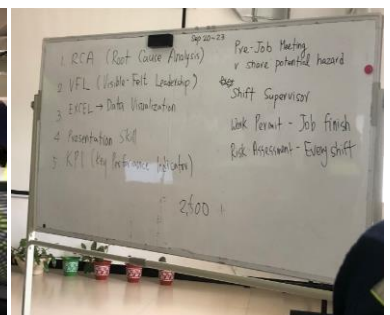 Sep 20-23
1. RCA (Root Cause Analysis)
2. VFL (Visible-Felt Leadership)
3. EXCEL → Data Visualization
4. Presentation Skill
5. KPI (Key Performance Indicator)
Pre-Job Meeting
share potential hazard
Shift Supervisor
Work Permit - Job finish
Risk Assessment - Every shift
2,500